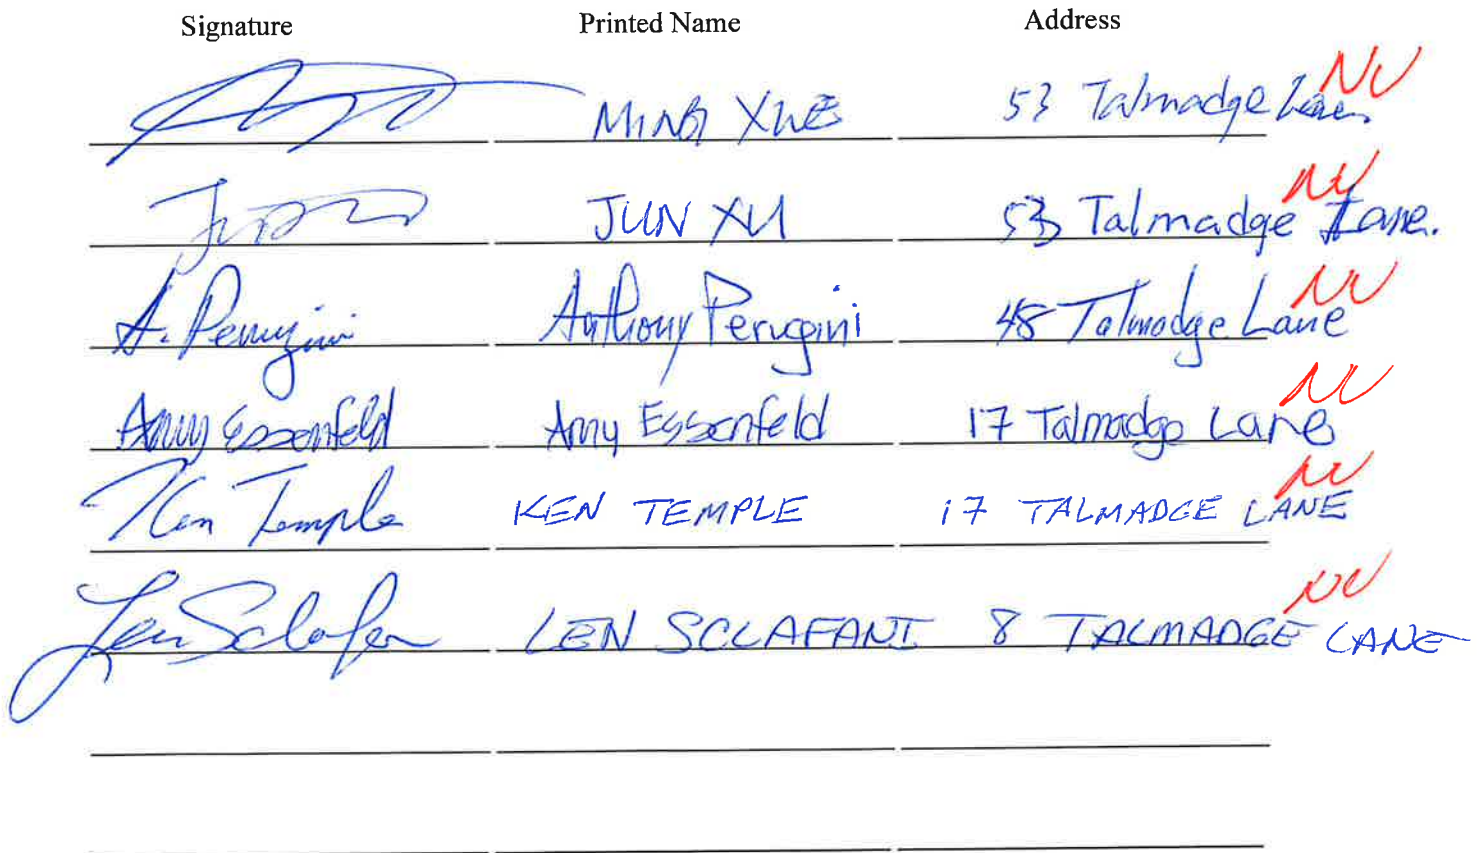 Signature Printed Name Address
MING XUE 53 Talmadge Lane NV
JUN XU 53 Talmadge Lane. NV
A. Perugini Anthony Perugini 48 Talmadge Lane NV
Amy Essenfeld Amy Essenfeld 17 Talmadge Lane NV
Ken Temple KEN TEMPLE 17 TALMADGE LANE NV
Len Sclafani LEN SCLAFANI 8 TALMADGE LANE NV